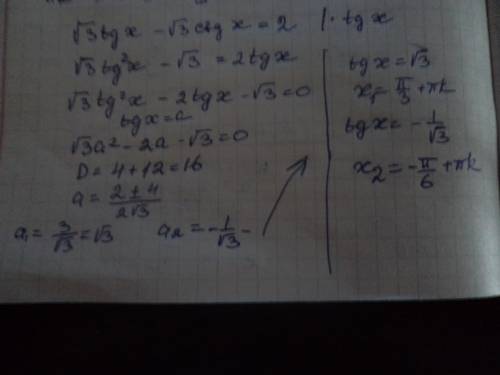 √3 tg x - √3 ctg x = 2 | · tg x
√3 tg²x - √3 = 2 tg x
√3 tg²x - 2 tg x - √3 = 0
tg x = a
√3 a² - 2a - √3 = 0
D = 4 + 12 = 16
a = (2 ± 4)/(2√3)
a₁ = 3/√3 = √3 a₂ = -1/√3 -
tg x = √3
x₁ = π/3 + πk
tg x = -1/√3
x₂ = -π/6 + πk